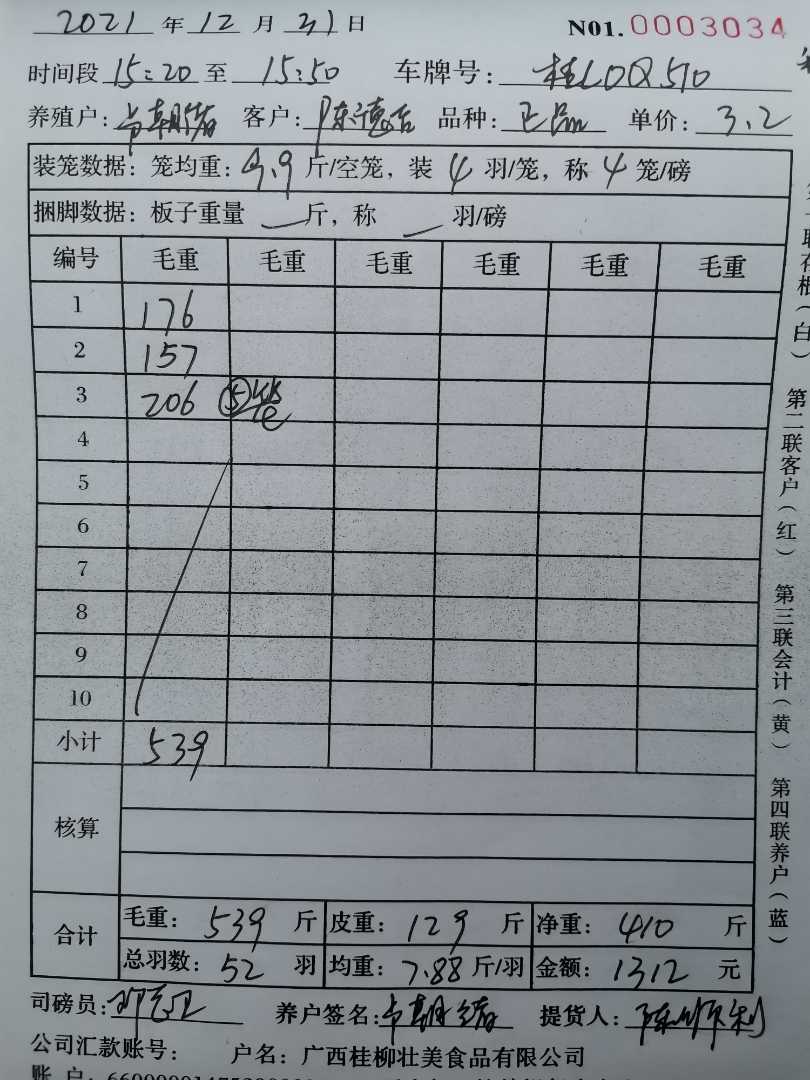 2021 年 12 月 31 日 N01. 0003034
时间段 15:20 至 15:50 车牌号: 桂LDQ510
养殖户: 客户: 陈德 品种: 正品 单价: 3.2
装笼数据: 笼均重: 9.9 斤/空笼, 装 4 羽/笼, 称 4 笼/磅
捆脚数据: 板子重量 — 斤, 称 — 羽/磅
编号 毛重 毛重 毛重 毛重 毛重 毛重
1 176
2 157
3 206 ⑤笼
4
5
6
7
8
9
10
小计 539
核算
合计 毛重: 539 斤 皮重: 129 斤 净重: 410 斤
总羽数: 52 羽 均重: 7.88 斤/羽 金额: 1312 元
司磅员: 养户签名: 提货人: 陈顺利
公司汇款账号: 户名: 广西桂柳壮美食品有限公司
账 户:
联存根(白)
第二联客户(红)
第三联会计(黄)
第四联养户(蓝)